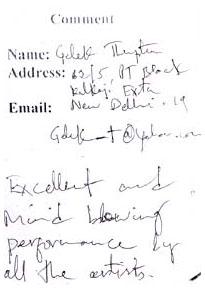 Comment
Name: Gelek Thupten
Address: 62/5, PT Block
Kalkaji Extn
Email: New Delhi - 19
Gelek_t@yahoo.com
Excellent and
Mind blowing
performance by
all the artists.